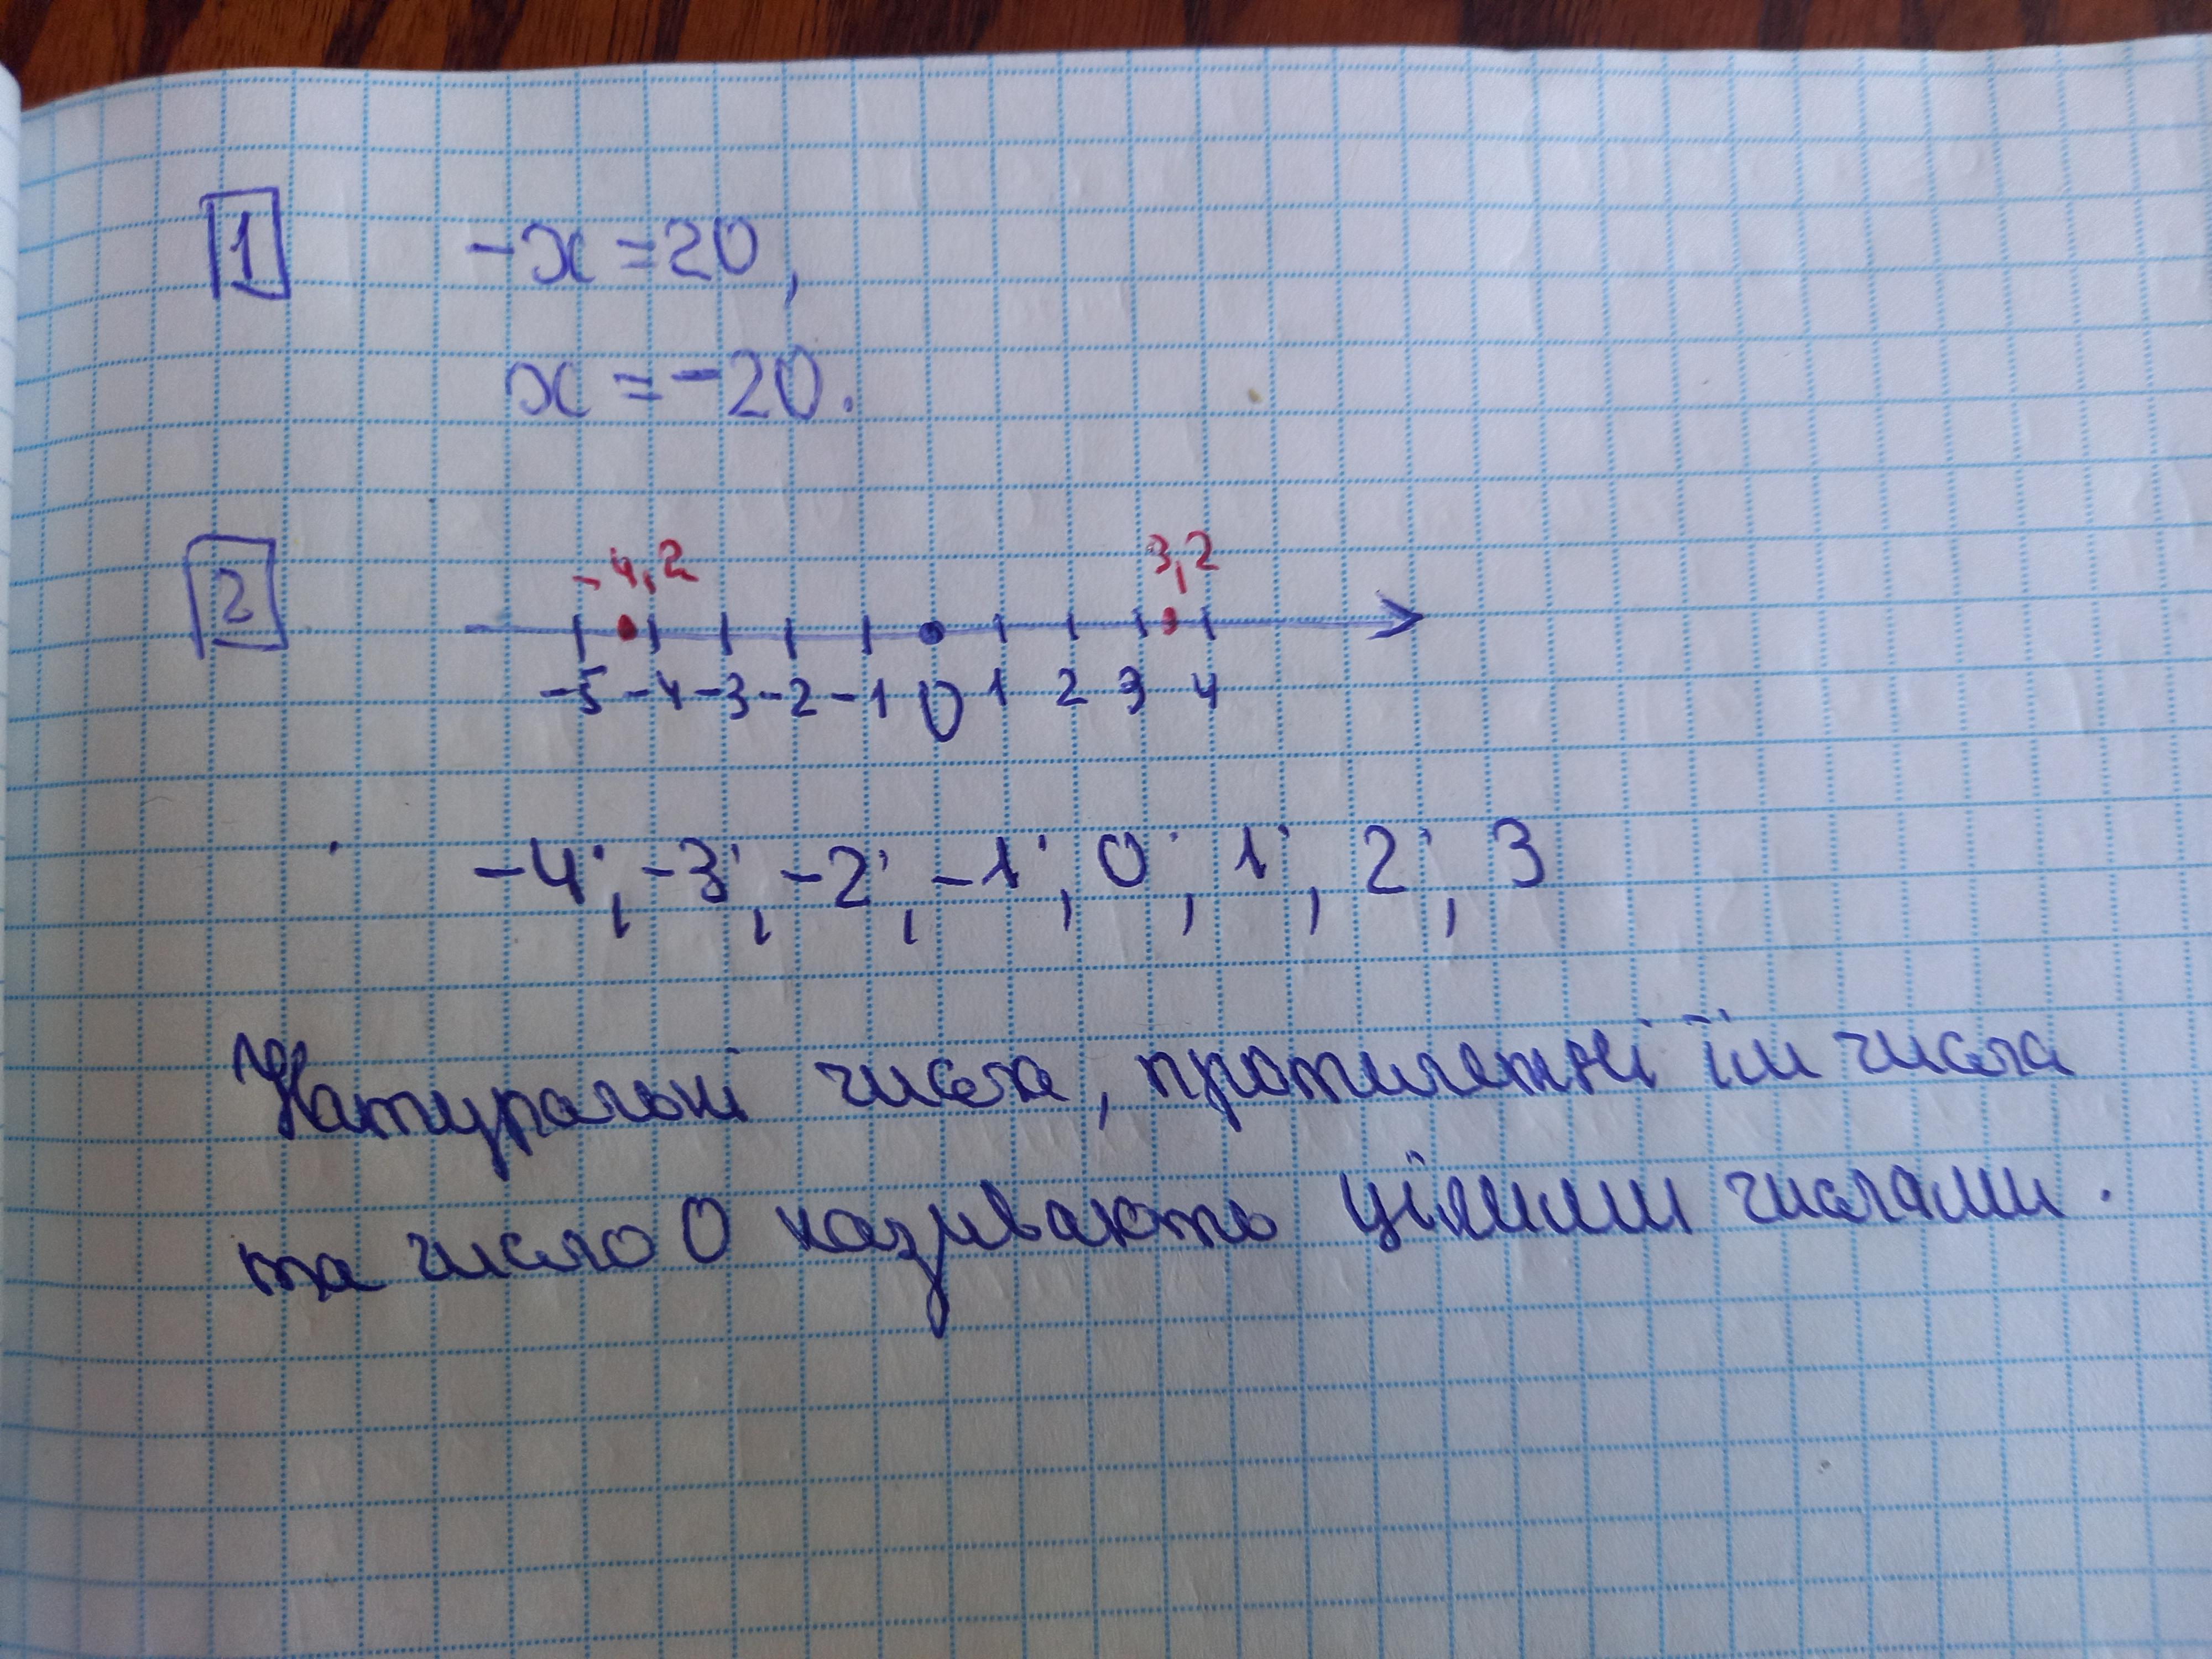 1 -x = 20,
x = -20.
2 -4,2 3,2
-5 -4 -3 -2 -1 0 1 2 3 4
-4; -3; -2; -1; 0; 1; 2; 3
Натуральні числа, протилежні їм числа
та число 0 називають цілими числами.